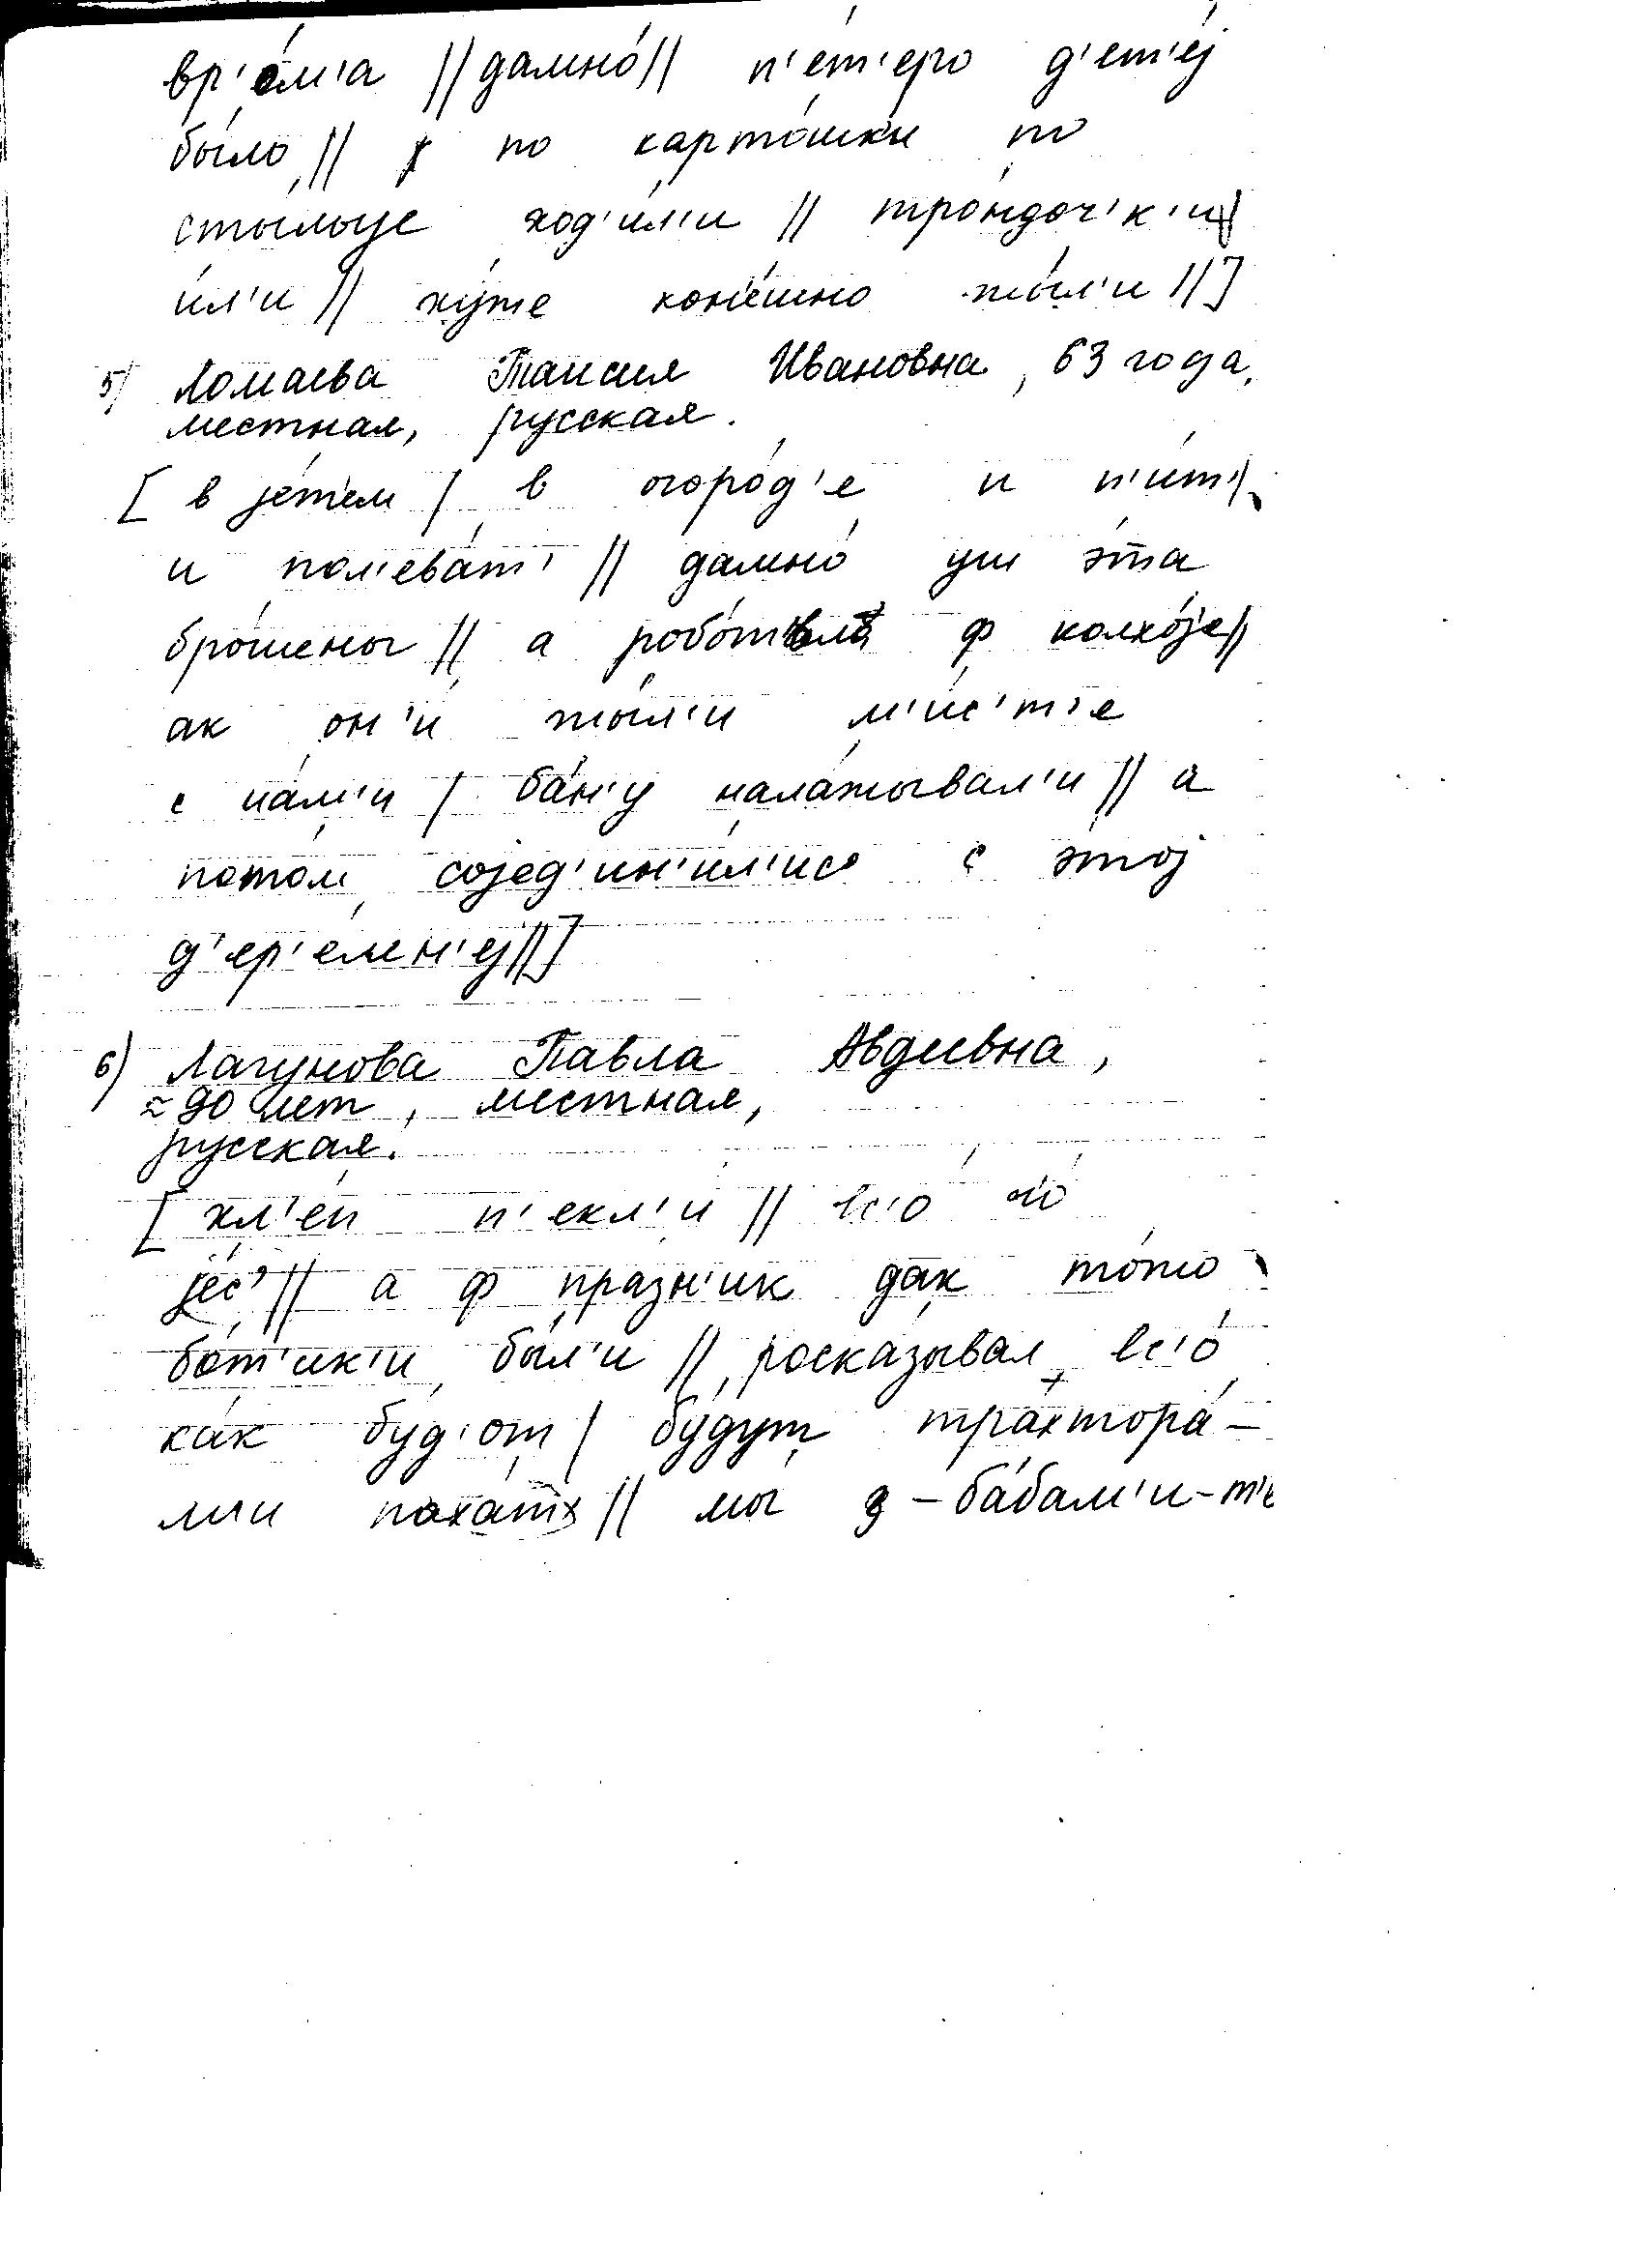 вр'е́м'а || дамно́ || п'е́т'еро д'ет'е́j
бы́ло || по карто́шки по
сты́лыjе ход'и́л'и || тро́ндоч'к'и
и́л'и || ху́же кон'е́шно жы́л'и ||]
5) Ломаева Таисия Ивановна, 63 года,
местная, русская.
[ в jе́тем | в огоро́д'е и п'и́т'
и пол'ева́т' || дамно́ уш э́та
бро́шены || а робо́т ф колхо́jе ||
ак он'и́ жы́л'и м'и́с'т'е
с на́м'и | ба́н'у нала́жывал'и || а
пото́м соjед'ин'и́л'ис' с э́тоj
д'ер'е́мн'еj ||]
6) Лагунова Павла Авдеевна,
≈ 90 лет, местная,
русская.
[ хл'е́п п'екл'и́ || вс'о́
jе́с' || а ф пра́зн'ик дак то́жо
бо́т'ик'и бы́л'и || роска́зывал вс'о́
ка́к бу́д'от | бу́дут тра́хтора́-
ми паха́т' || мы́ з-ба́бам'и-т'е